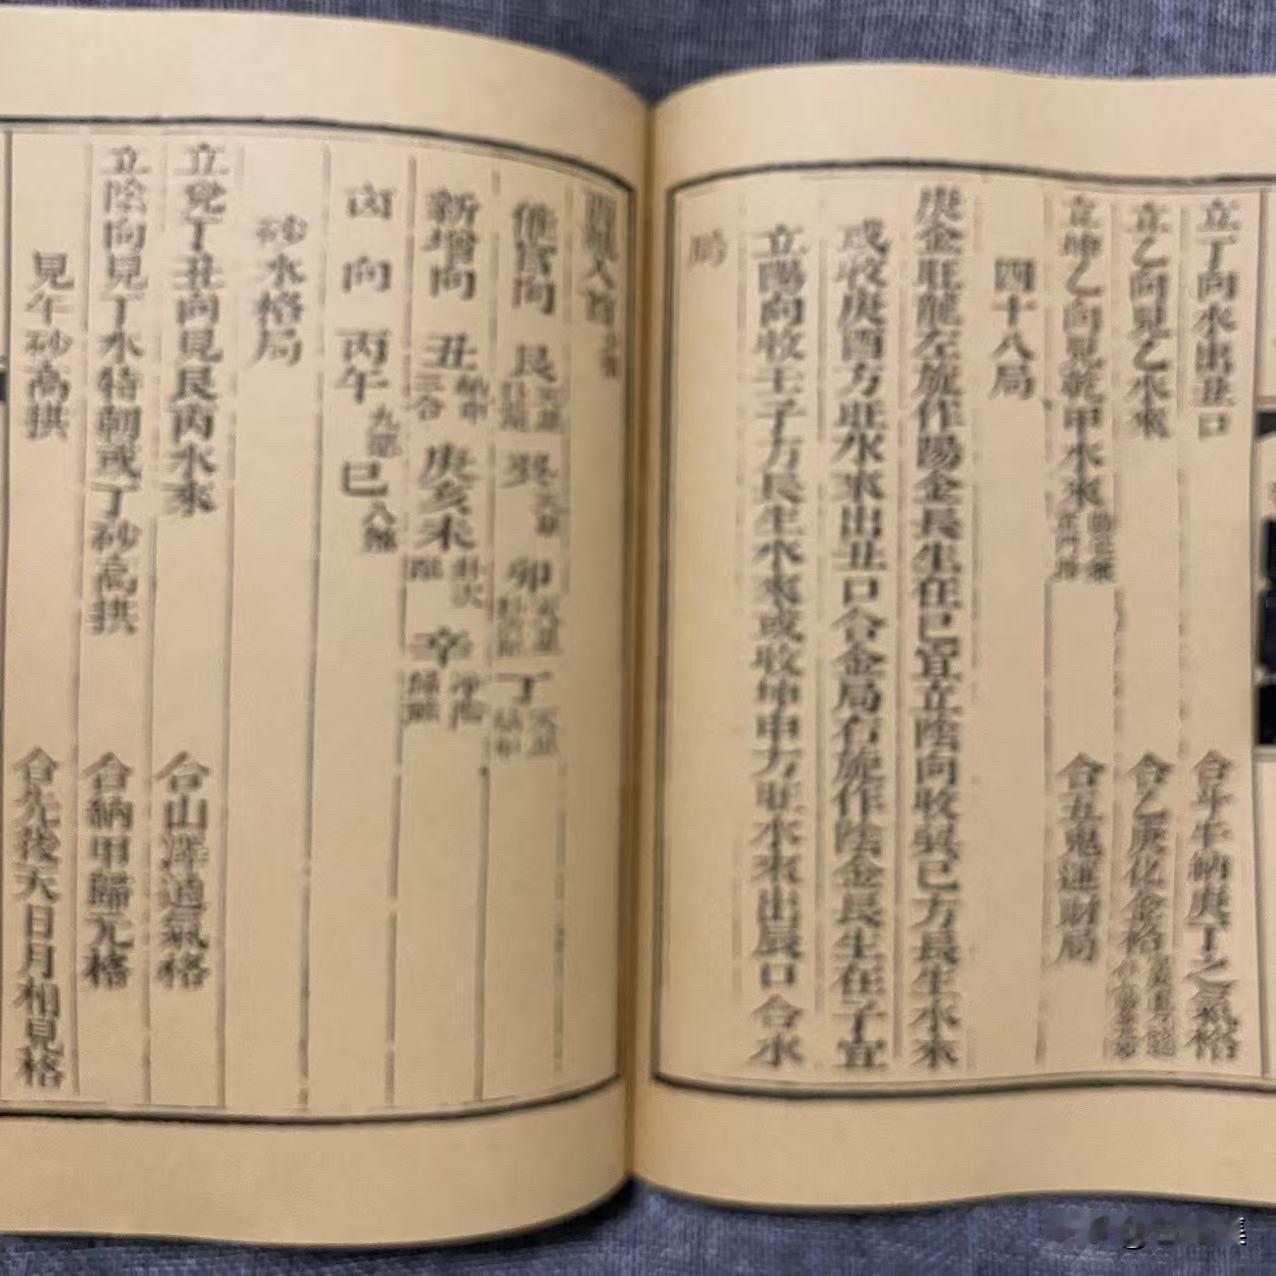 立丁向水出丑口 合斗牛納庚丁之氣格
立乙向見乙水來 合乙庚化金格
立坤乙向見乾甲水來 合五鬼運財局
四十八局
庚金旺龍左旋作陽金長生在巳宜立陰向收巽巳方長生水來
或收庚酉方旺水來出丑口合金局右旋作陰金長生在子宜
立陽向收壬子方長生水來或收坤申方旺水來出辰口合水
局
入首
催官向 艮 巽 卯 丁
新增向 丑 納甲 三合 庚亥未 辛 淨陰
凶向 丙午 巳 八煞
砂水格局
立兌丁丑向見艮丙水來 合山澤通氣格
立陰向見丁水特朝或丁砂高拱 合納甲歸元格
見午砂高拱 合先後天日月相見格